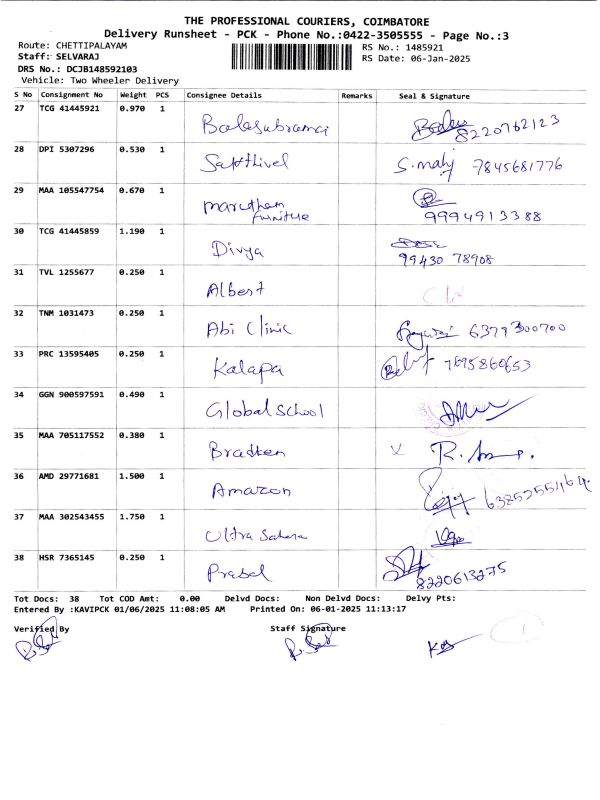 THE PROFESSIONAL COURIERS, COIMBATORE
Delivery Runsheet - PCK - Phone No.:0422-3505555 - Page No.:3
Route: CHETTIPALAYAM RS No.: 1485921
Staff: SELVARAJ RS Date: 06-Jan-2025
DRS No.: DCJB148592103
Vehicle: Two Wheeler Delivery
S No Consignment No Weight PCS Consignee Details Remarks Seal & Signature
27 TCG 41445921 0.970 1 Balasubramai 8220762123
28 DPI 5307296 0.530 1 Sakthivel S. mahj 7845681776
29 MAA 105547754 0.670 1 Marutham
Furniture 9994913388
30 TCG 41445859 1.190 1 Divya 99430 78908
31 TVL 1255677 0.250 1 Albert
32 TNM 1031473 0.250 1 Abi Clinic 6379300700
33 PRC 13595405 0.250 1 Kalapa 7695860653
34 GGN 900597591 0.490 1 Global School
35 MAA 705117552 0.380 1 Bradken
36 AMD 29771681 1.500 1 Amazon
37 MAA 302543455 1.750 1 Ultra Sahara
38 HSR 7365145 0.250 1 8220613275
Tot Docs: 38 Tot COD Amt: 0.00 Delvd Docs: Non Delvd Docs: Delvy Pts:
Entered By :KAVIPCK 01/06/2025 11:08:05 AM Printed On: 06-01-2025 11:13:17
Verified By Staff Signature